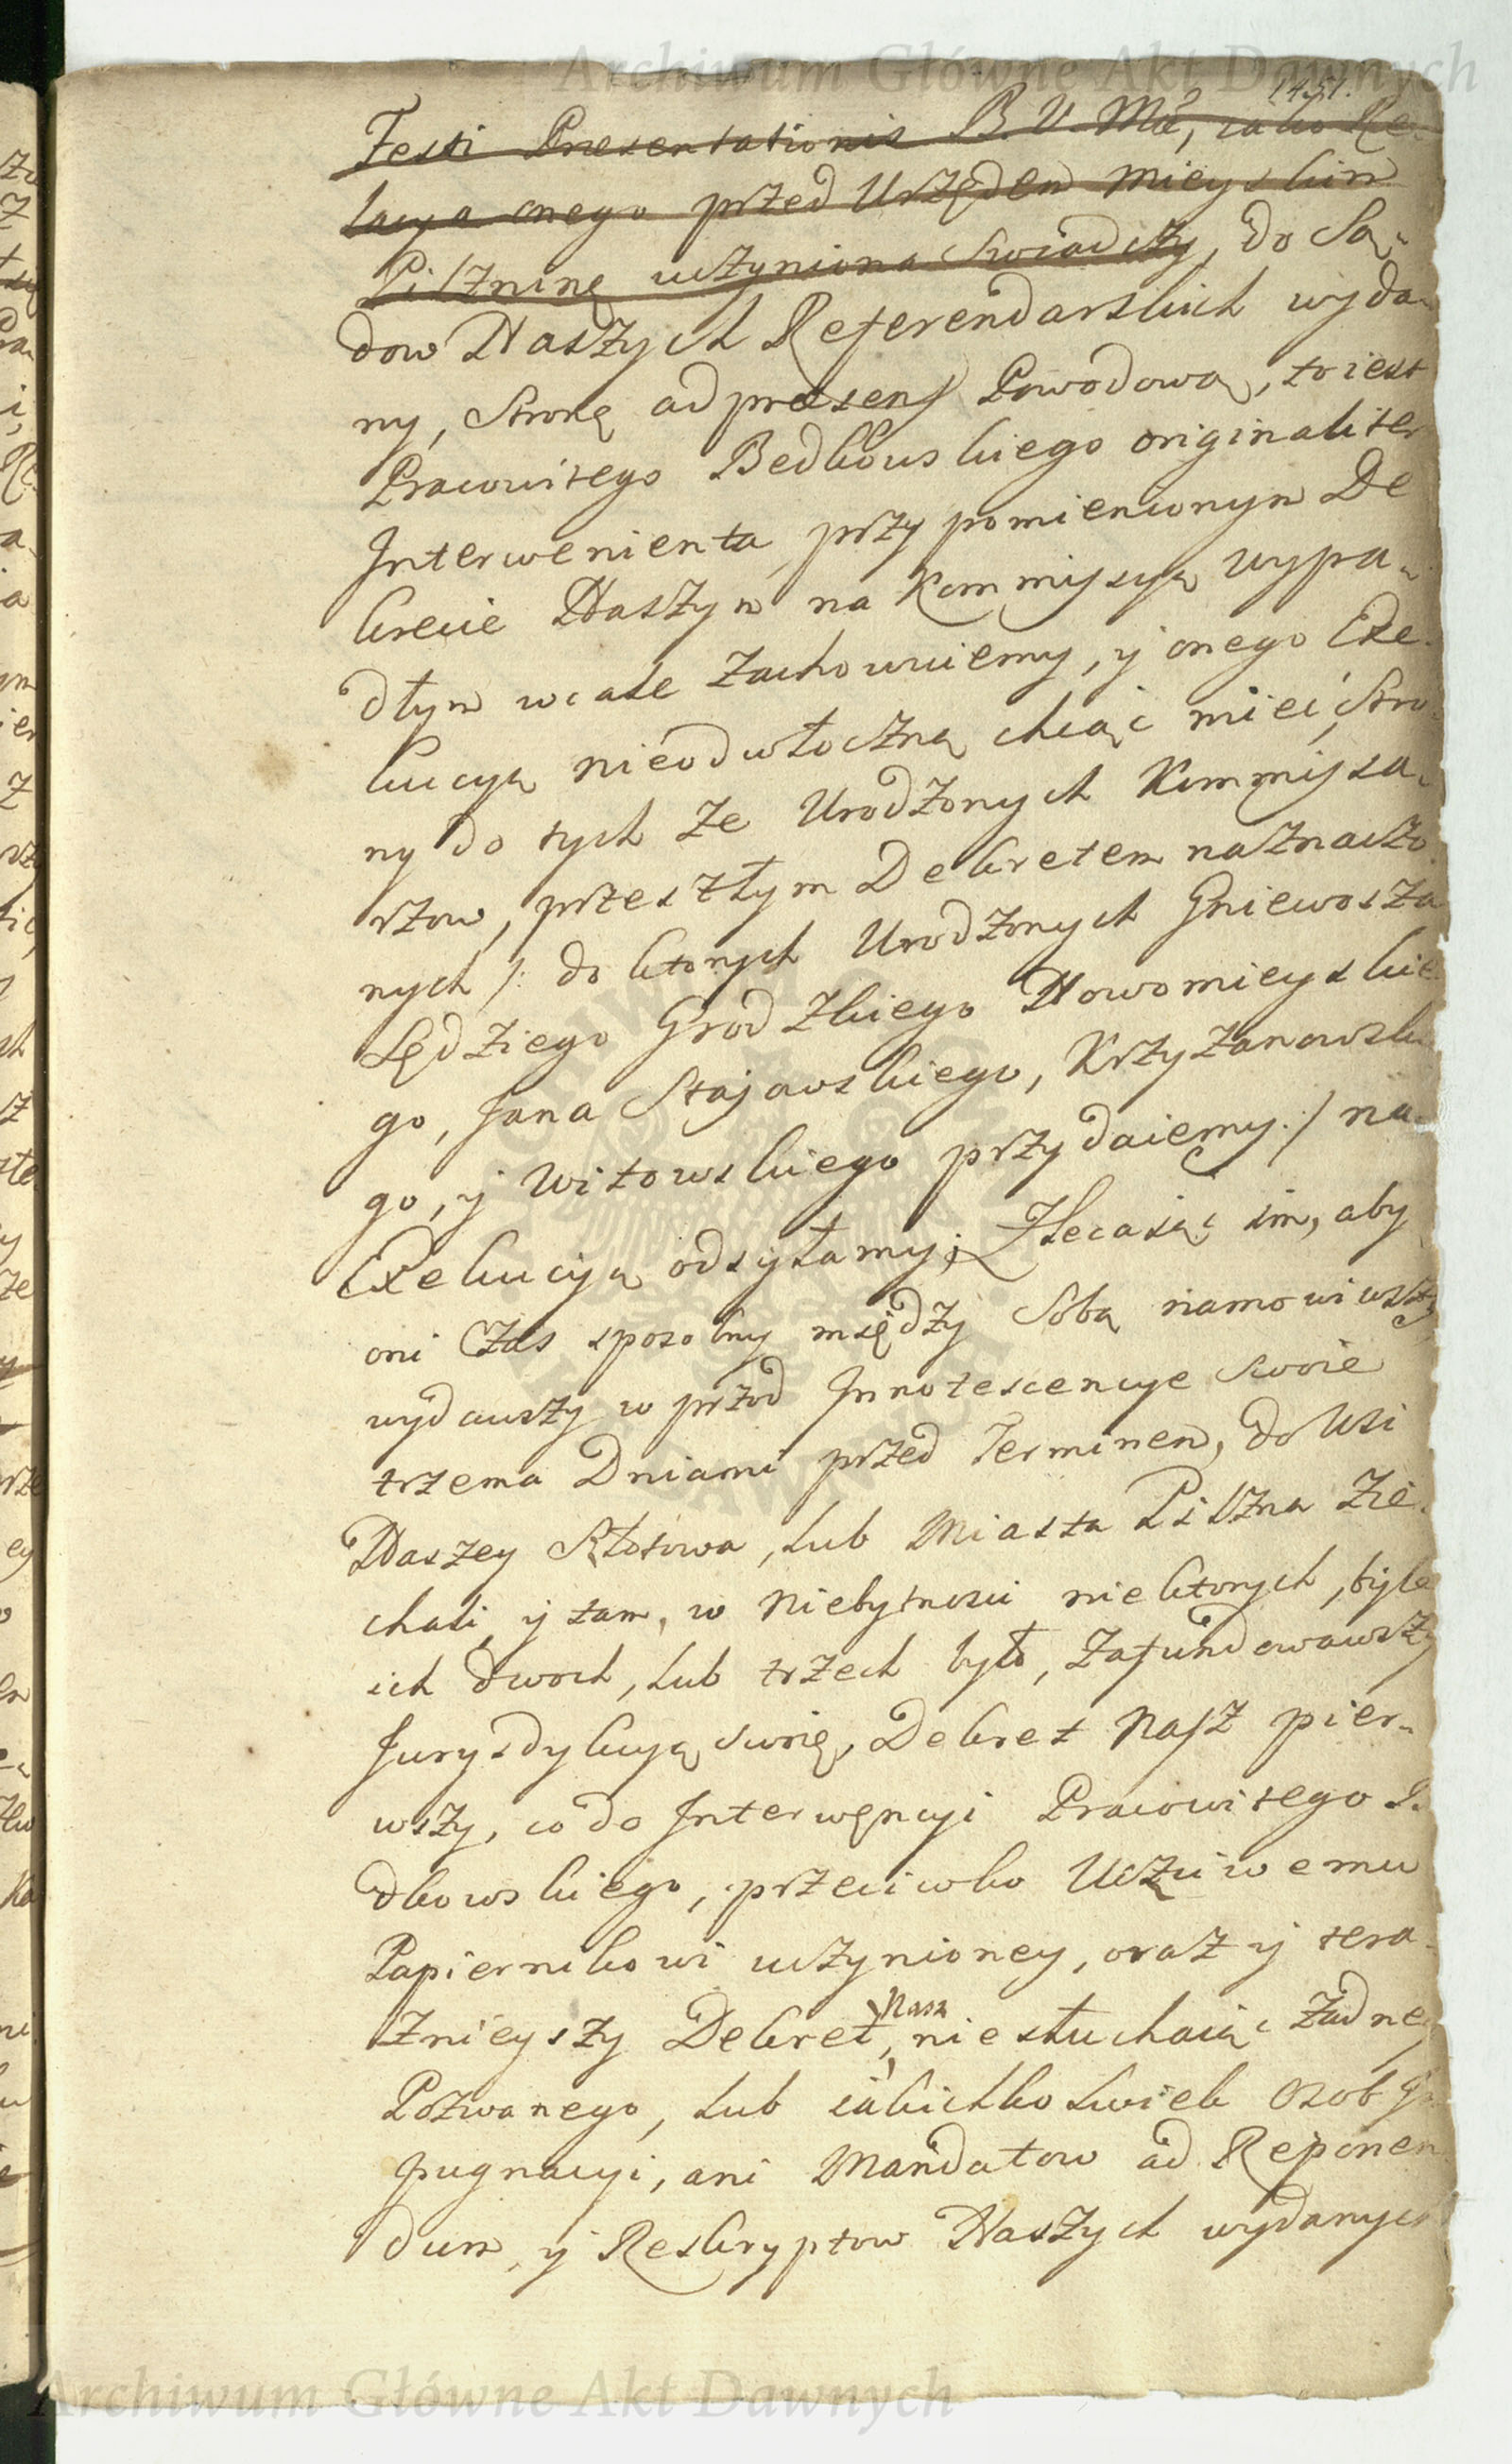 Archiwum Główne Akt Dawnych
1451.
Festi Presentationis B. V. Mæ, iako Re-
lacya onego przed Urzędem Mieyskim
Pilznine uczyniona świadczy, do Są-
dow Naszych Referendarskich wyda-
ny, Stronę ad præsens Powodową, to iest
Pracowitego Bedkowskiego originaliter
Interwenienta, przy pomienionym De
krecie Naszym na Kommissyą wypa-
dłym wcale zachowuiemy, y onego Exe-
kucyą nieodwłoczną chcąc mieć, Stro-
ny do tych że Urodzonych Kommissa-
rzow, przeszłym Dekretem naznaczo-
nych /: do ktorych Urodzonych Gniewosza
Sędziego Grodzkiego Nowomieyskie
go, Jana Stajowskiego, Krzyzanowskie
go, y Witowskiego przydaiemy :/ na
Exekucyą odsyłamy; Zlecaiąc im, aby
oni czas sposobny między Sobą namowiwszy
wydawszy w przod Innotescencye swoie
trzema Dniami przed Terminem, do Wsi
Naszey Kłosowa, lub Miasta Pilzna Zie-
chali, y tam, w niebytnosci niektorych, byle
ich dwoch, lub trzech było, zafundowawszy
Jurysdykcyą swoię, Dekret Nasz pier-
wszy, co do Interwencyi Pracowitego
dkowskiego, przeciwko Uczciwemu
Papiernikowi uczynioney, oraz y tera-
znieyszy Dekret Nasz, nie słuchaiąc żadney
Pozwanego, lub iakichkolwiek Osob Im
pugnacyi, ani Mandatow ad Reponen
dum, y Reskryptow Naszych wydanych
Archiwum Główne Akt Dawnych